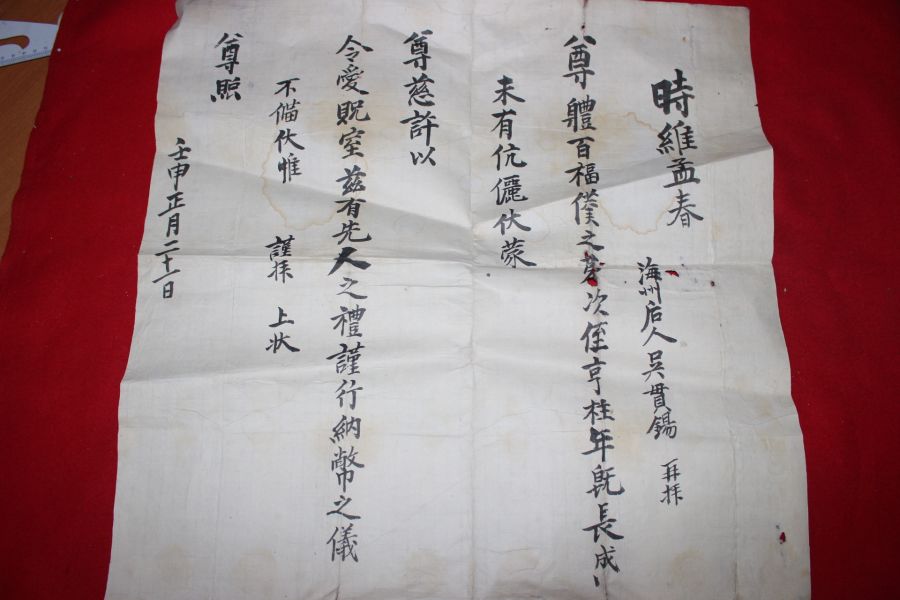 時維孟春
海州后人吳貫錫 再拝
尊體百福僕之 次侄亨桂年旣長成
未有伉儷伏蒙
尊慈許以
令愛貺室茲有先人之禮謹行納幣之儀
不備伏惟 謹拝 上状
尊照
壬申正月二十一日